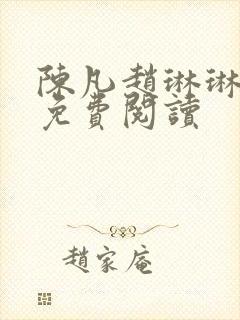 陳凡趙琳琳
免費閱讀
趙家庵